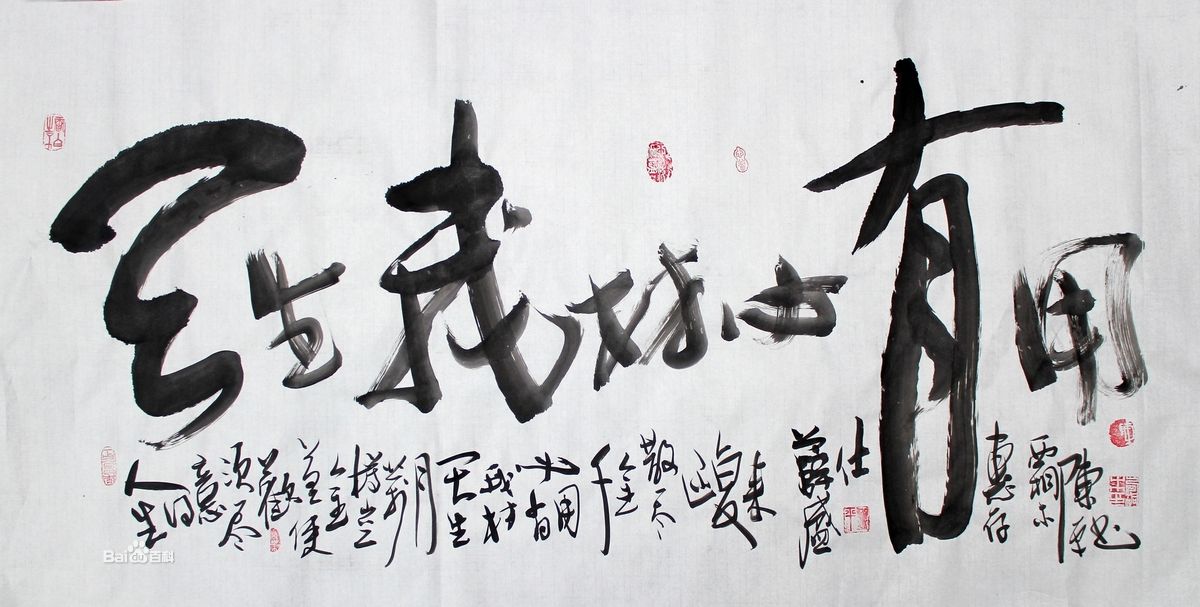 天生我材必有用
人生得意须尽歡莫使金樽空對月天生我材必有用千金散尽還復来
惠存
Bai百科